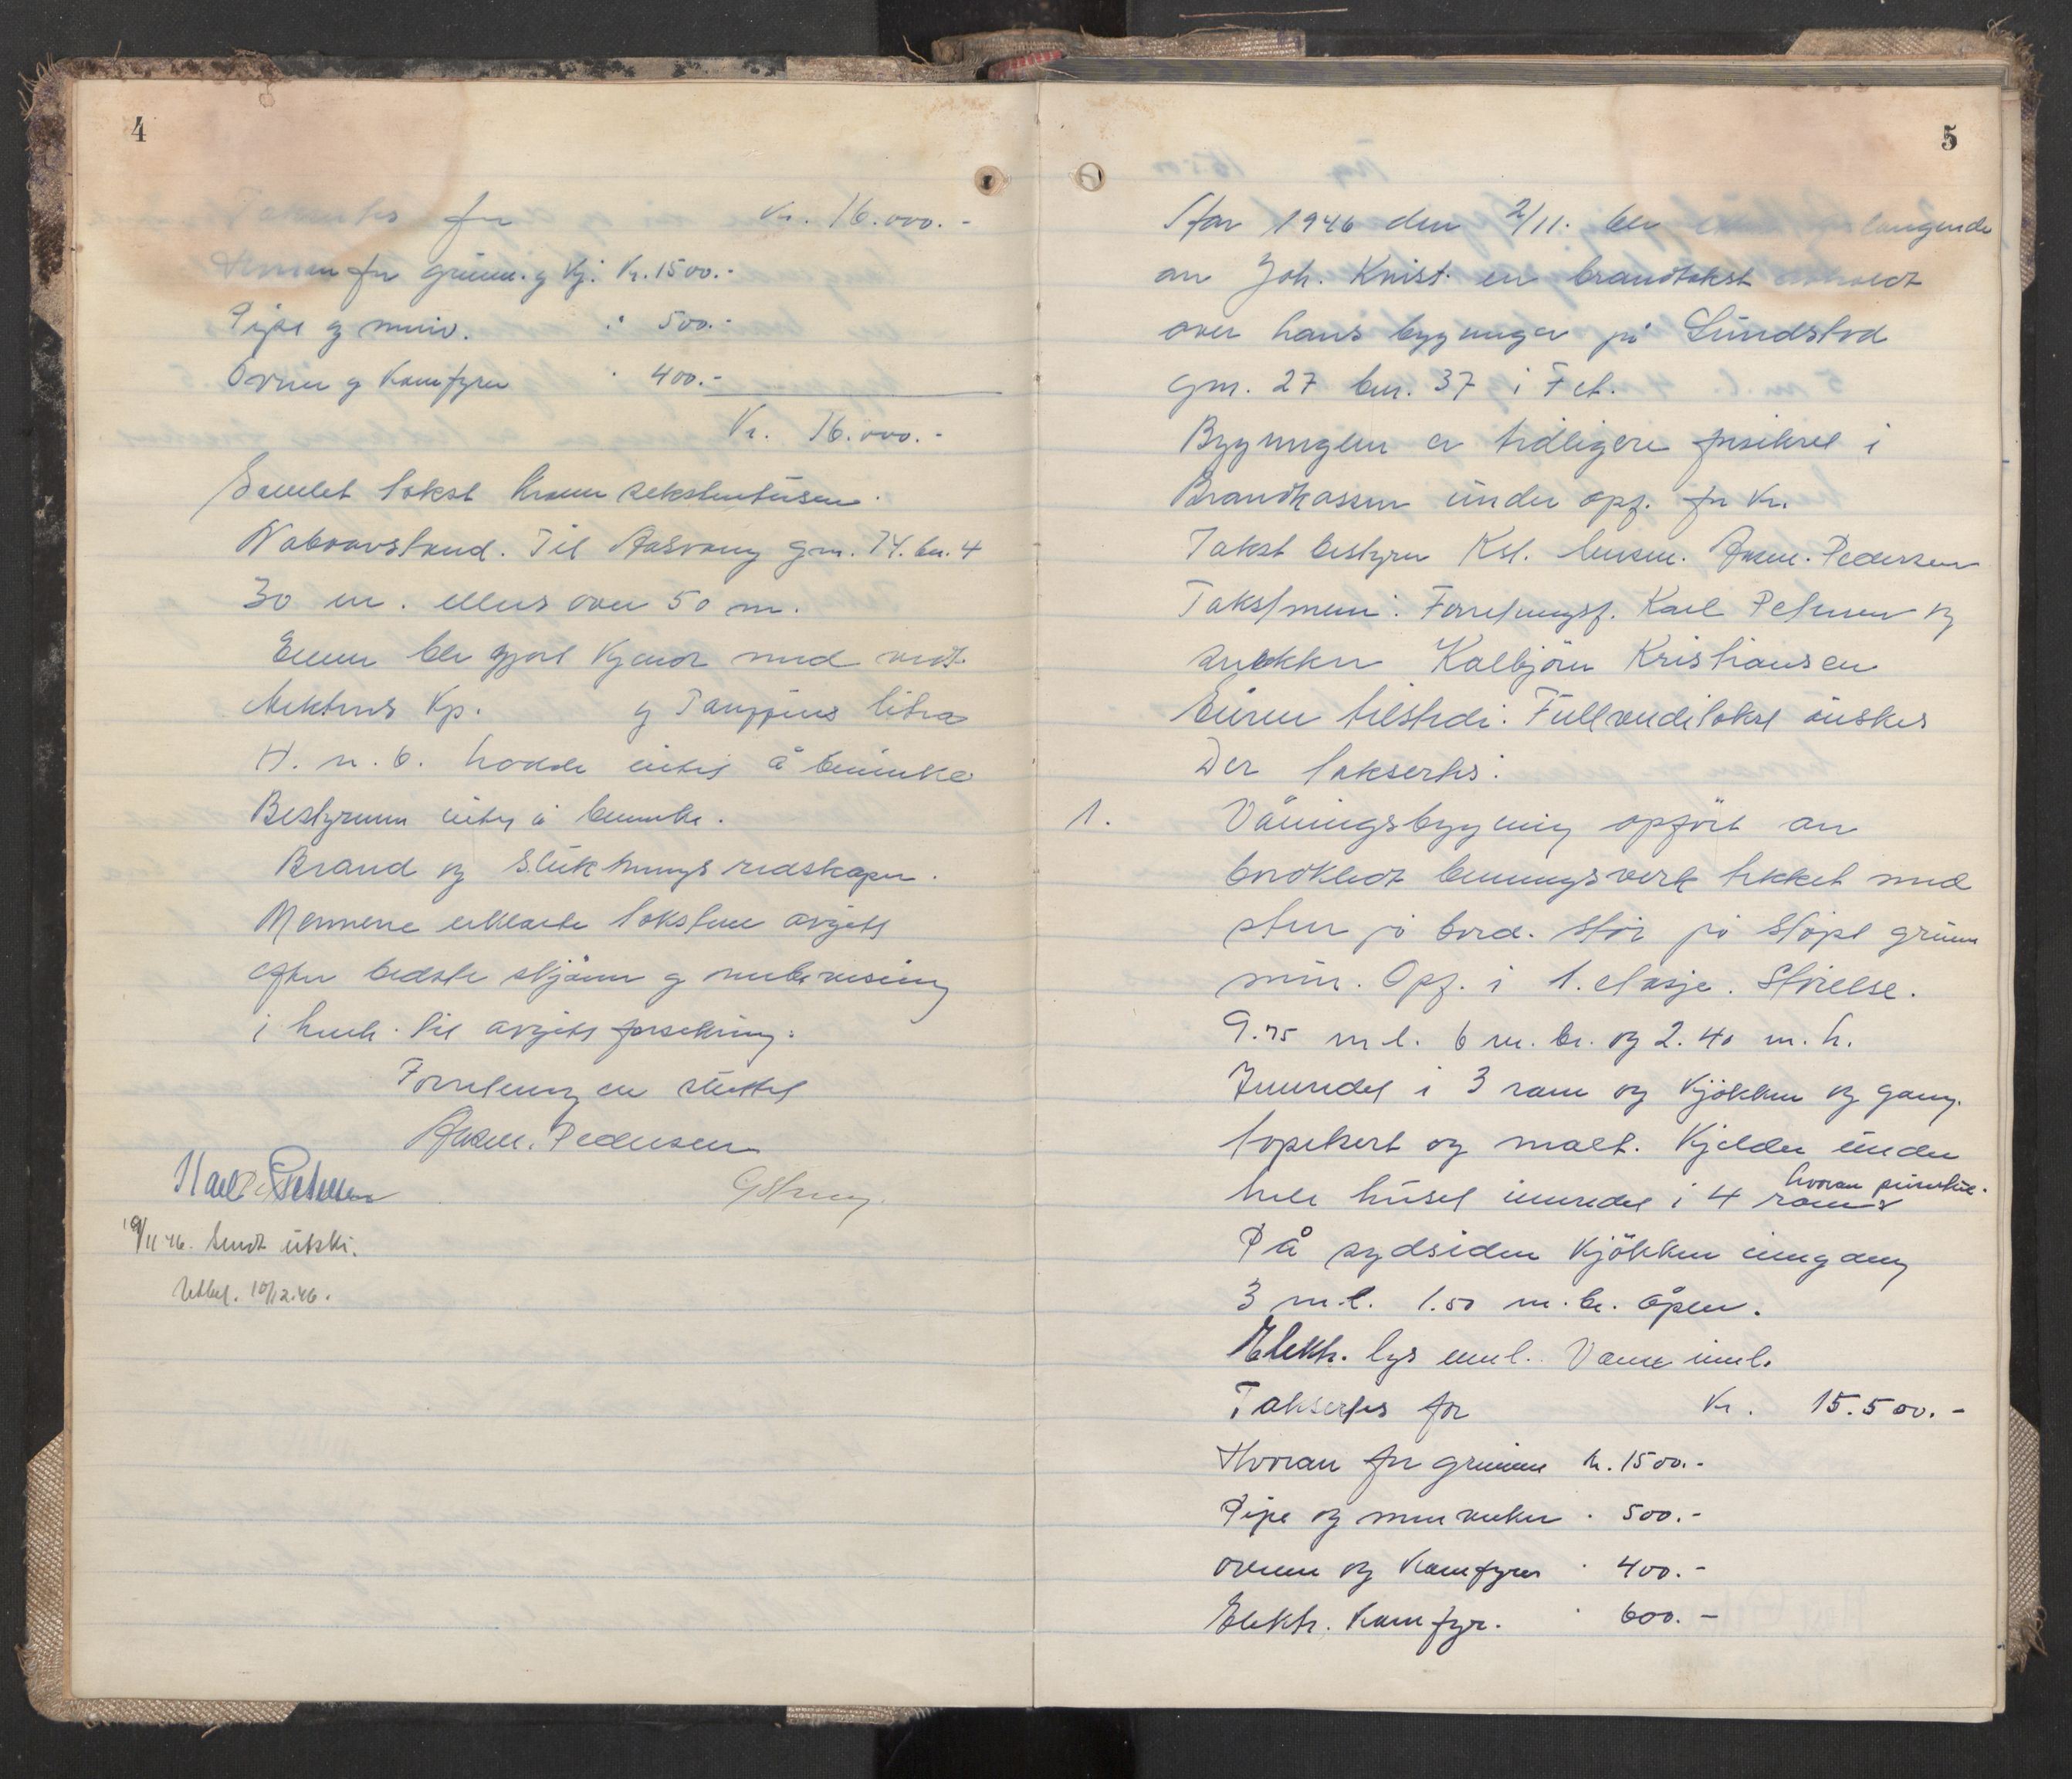 4
Takseres for Kr. 16.000.-
Hvorav for grunn. og kj. Kr. 1500.-
Pipe og murv. " 500.-
Ovnen og Komfyren " 400.-
Kr. 16.000.-
Samlet takst Kroner sekstentusen.
Naboavstand. Til Aasvang gnr. 74. bn. 4
30 m. ellers over 50 m.
Eieren ble gjort kjendt med vedt.
H. n. b. hadde intet å bemerke
Bestyreren intet å bemerke.
Brand og Sluktnings redskaper.
Mennene erklærte taksten avgitt
efter bedste skjönn og overbevisning
i henh. til avgitt forsikring.
Forretningen sluttet
Asm. Pedersen
Karl Petersen
19/11 46. Sendt utskr.
Utbet. 10/12.46.
5
Aar 1946 den 2/11. ble forlangende
av Joh. Knist. en brandtakst avholdt
over hans bygninger på Sundstod
gnr. 27 bnr. 37 i Fet.
Bygningen er tidligere forsikret i
Brandkassen under opf. for Kr.
Takst bestyrer Kst. lensm. Asm. Pedersen
Takstmenn: Forretningsf. Karl Petersen og
snekker Kolbjörn Kristiansen
Eieren tilstede. Fullverditakst önskes
Der taksertes:
1. Våningsbygning opfört av
bordkledt bindingsverk tekket med
sten på bord. Står på Støpt grunn
mur. Opf. i 1. etasje. Störelse.
9.75 m l. 6 m. br. og 2.40 m. h.
Innredet i 3 rom og Kjökken og gang.
tapetsert og malt. Kjelder under
hele huset innredet i 4 rom
På sydsiden Kjökken inngang
3 m. l. 1.50 m. br. åpen.
Elektr. lys innl. Vann innl.
Takseres for Kr. 15.500.-
Hvorav for grunnen kr. 1500.-
Pipe og murverker " 500.-
ovnen og Komfyren " 400.-
Elektr. Komfyr. " 600.-